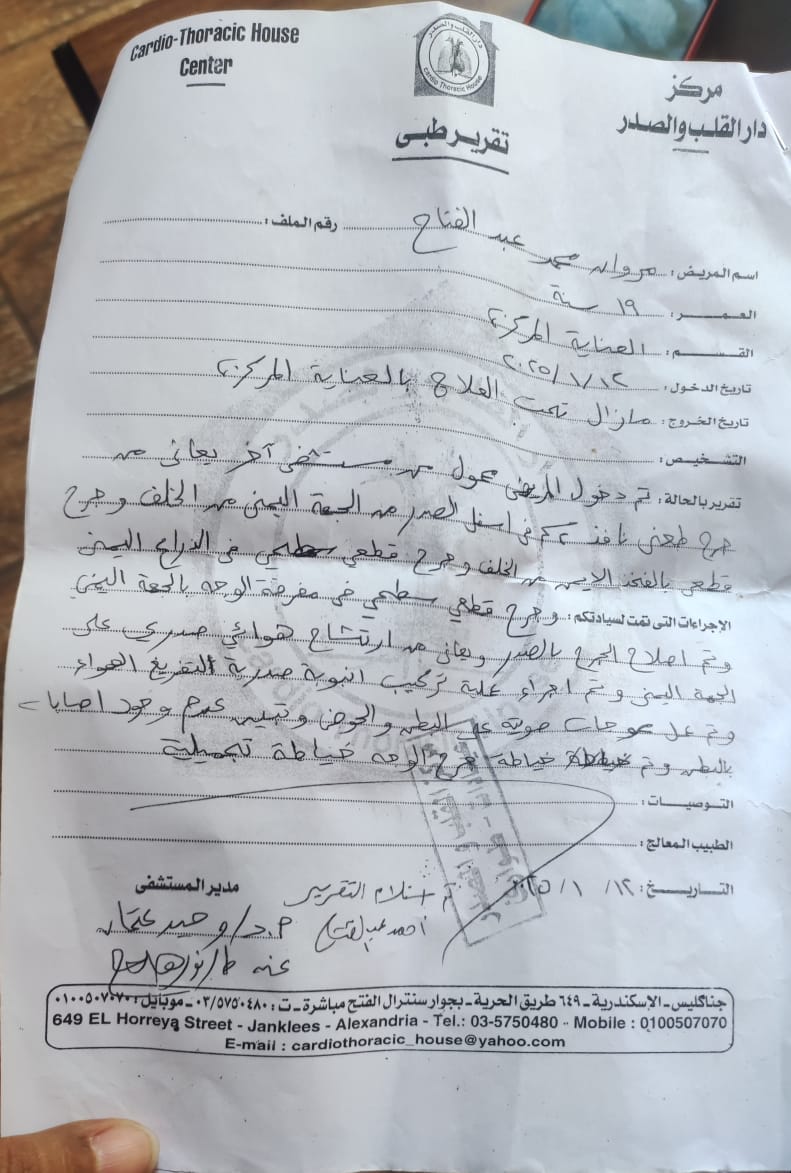 Cardio-Thoracic House
Center
دار القلب والصدر
Cardio Thoracic House
مركز
دار القلب والصدر
تقرير طبى
اسم المريض : مروان محمد عبد الفتاح رقم الملف :
العمــــر : ١٩ سنة
القســـم : العناية المركزة
تاريخ الدخول : ٢٠٢٥/١/١٢
تاريخ الخروج : مازال تحت العلاج بالعناية المركزة
التشخيـص :
تقرير بالحالة : تم دخول المريض محول من مستشفى آخر يعانى من
جرح طعنى نافذ ٢ سم فى اسفل الصدر من الجهة اليمنى من الخلف وجرح
قطعي بالفخذ الايمن من الخلف وجرح قطعي سطحي فى الذراع اليمنى
الإجراءات التى تمت لسيادتكم : وجرح قطعي سطحي فى الوجه بالجهة اليمنى
وتم اصلاح الجرح بالصدر ويعانى من ارتشاح هوائي صدرى على
الجهة اليمنى وتم اجراء عملية تركيب انبوبة صدرية لتفريغ الهواء
وتم عمل موجات صوتية على البطن والحوض وتبين عدم وجود اصابات
بالبطن وتم خياطة جرح الوجه خياطة تجميلية
التوصيـات :
الطبيب المعالج :
التاريــــخ : ١٢ / ١ / ٢٠٢٥ تم استلام التقرير مدير المستشفى
احمد عبد الفتاح م.د/ وحيد عتمان
عنه
جناكليس - الإسكندرية - ٦٤٩ طريق الحرية - بجوار سنترال الفتح مباشرة - ت : ٠٣/٥٧٥٠٤٨٠ - موبايل : ٠١٠٠٥٠٧٠٧٠
649 EL Horreya Street - Janklees - Alexandria - Tel.: 03-5750480 - Mobile : 0100507070
E-mail : cardiothoracic_house@yahoo.com